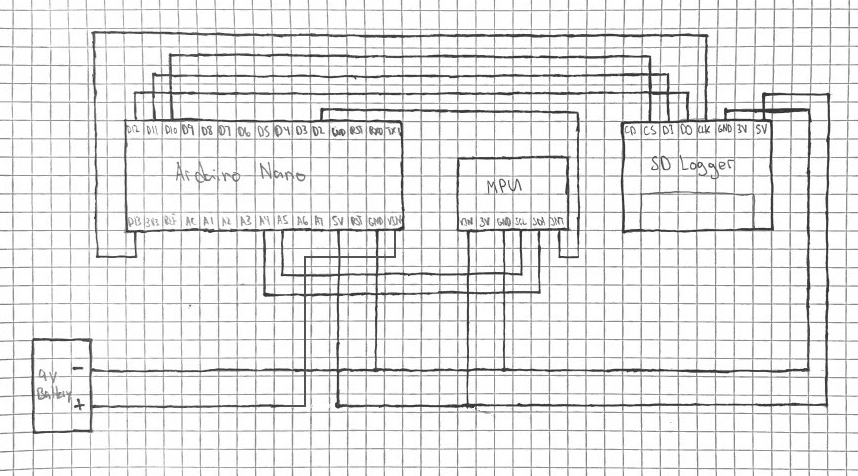 D12 D11 D10 D9 D8 D7 D6 D5 D4 D3 D2 GND RST RX0 TX1
Arduino Nano
D13 3V3 REF A0 A1 A2 A3 A4 A5 A6 A7 5V RST GND VIN
MPU
VIN 3V GND SCL SDA INT
CD CS DI DO CLK GND 3V 5V
SD Logger
-
9V
Battery
+